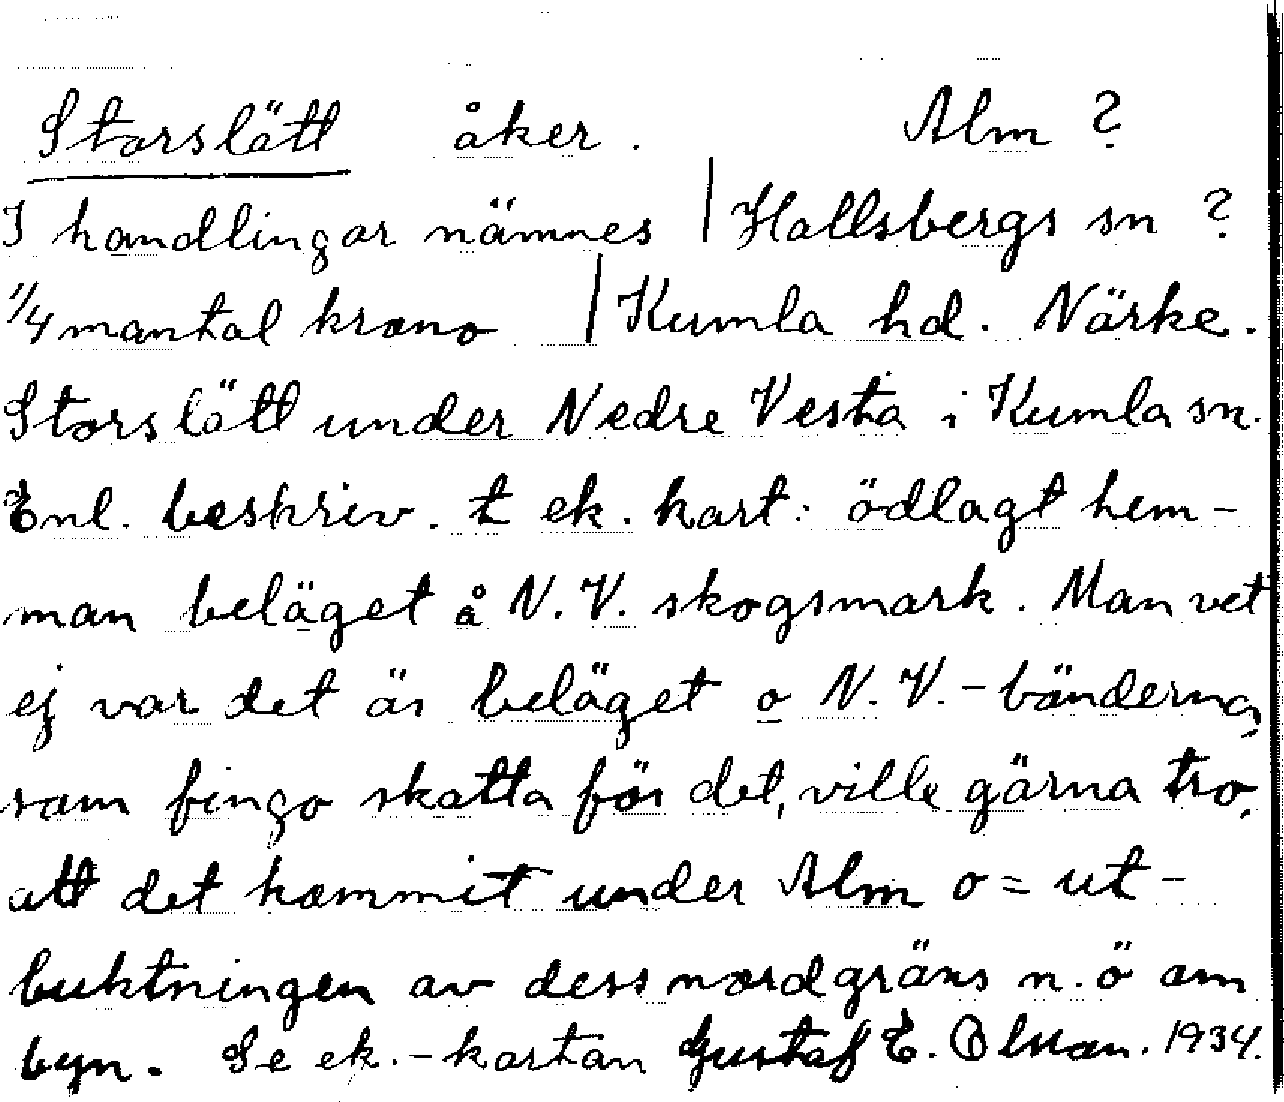 Storslätt åker. Alm ?
I handlingar nämnes | Hallsbergs sn ?
1/4 mantal krono | Kumla hd. Närke.
Storslätt under Nedre Vesta i Kumla sn.
Enl. beskriv. t ek. kart: ödlagt hem-
man beläget å N.V. skogsmark. Man vet
ej var det är beläget o N.V.-bönderna,
som fingo skatta för det, ville gärna tro,
att det kommit under Alm o = ut-
buktningen av dess nordgräns n.ö om
byn. Se ek.-kartan Gustaf E. Olsson. 1934.